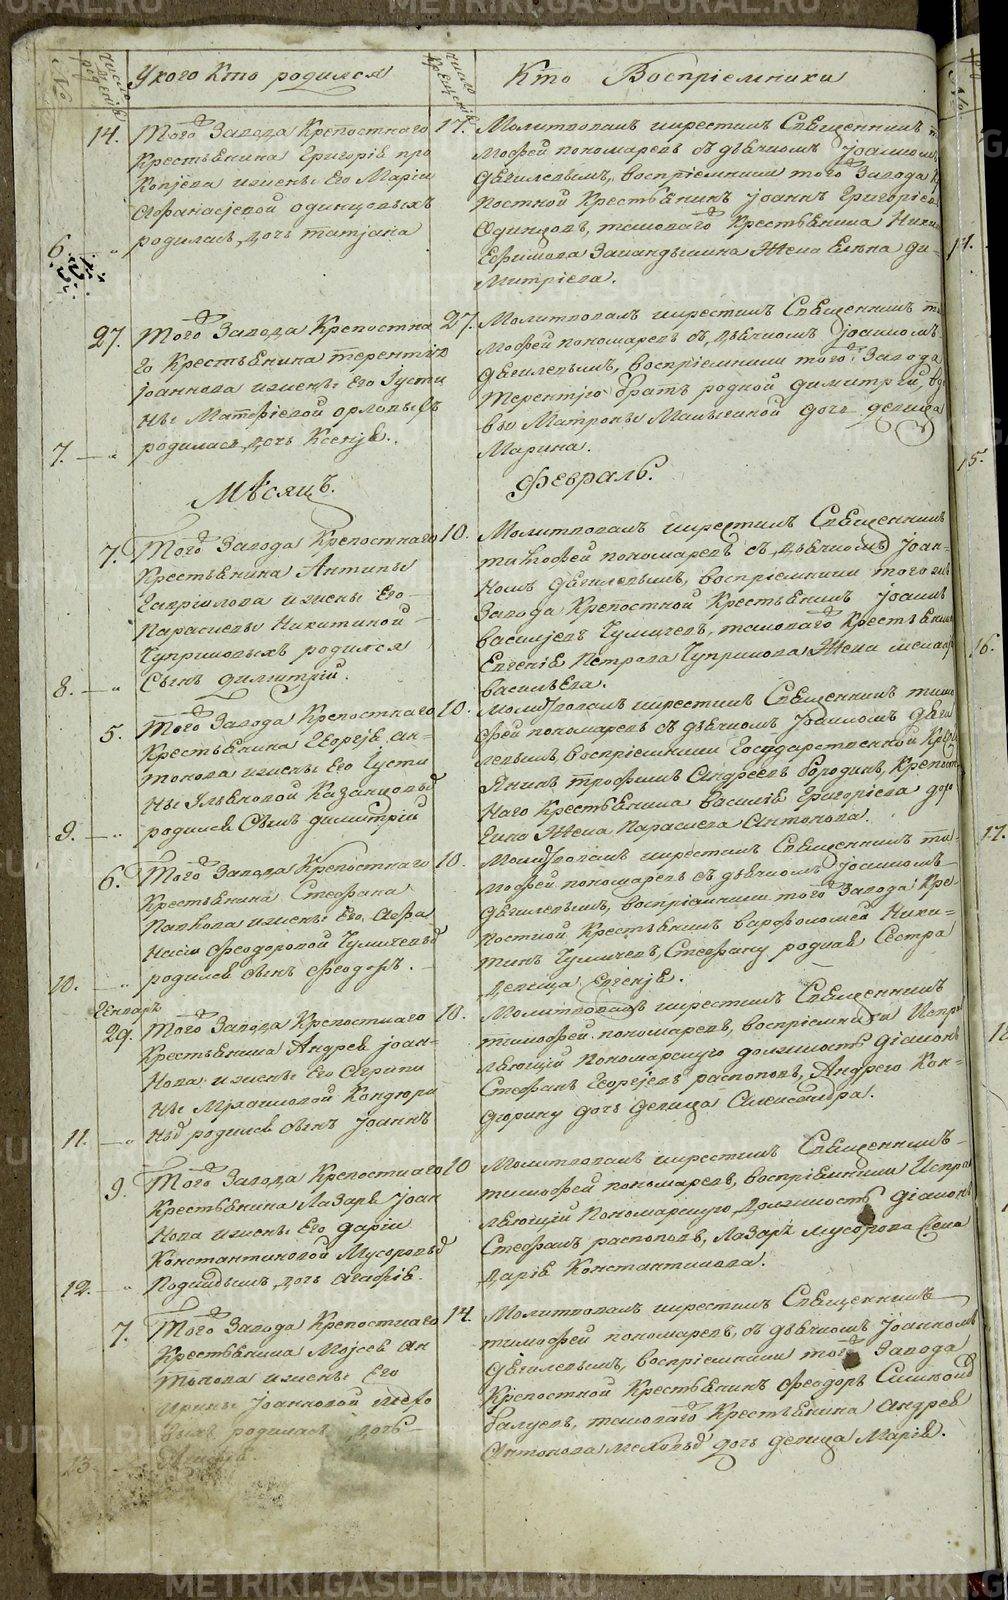 №
число рожденія
У кого кто родился
число крещенія
Кто Воспріемники
14.
Того Завода Крепостнаго
Крестьянина Григорія Про
копіева и жены Его Маріи
Афанасіевой Одинцовыхъ
6.
родилась дочь Татіана
17.
Молитвовалъ и крестилъ Священникъ Ти
мофей Пономаревъ съ дьячкомъ Іоанномъ
Дягилевымъ, воспріемники того Завода Кре
постной Крестьянинъ Іоаннъ Григоріевъ
Одинцовъ, таковаго Крестьянина Ники
Ефимова Жена Елена Ди
митріева.
27.
Того Завода Крепостна
го Крестьянина Терентія
Іоаннова и жены Его Іусти
ны Матфіевой Орловыхъ
7.
родилась дочь Ксенія.
27.
Молитвовалъ и крестилъ Священникъ Ти
мофей Пономаревъ съ дьячкомъ Іоанномъ
Дягилевымъ, воспріемники того Завода
Терентію братъ родной Димитрій, вдо
вы Матроны дочь девица
Марина.
Мѣсяцъ.
Февраль.
7.
Того Завода Крепостнаго
Крестьянина Антипы
Гавріилова и жены Его
Парасковьи Никитиной
Чуприковыхъ родился
8.
Сынъ Димитрій.
10.
Молитвовалъ и крестилъ Священникъ
Тимофей Пономаревъ съ дьячкомъ Іоан-
номъ Дягилевымъ, воспріемники того же
Завода Крепостной Крестьянинъ Іоаннъ
Васильевъ Чумичевъ, таковаго Крестьянина
Евгенія Петрова Чуприкова Жена
Васильева.
5.
Того Завода Крепостнаго
Крестьянина Георгія Ан-
тонова и жены Его Іусти
ны Ульяновой Казанцовыхъ
9.
родился Сынъ Димитрій
10.
Молитвовалъ и крестилъ Священникъ Тимо
фей Пономаревъ съ дьячкомъ Іоанномъ Дяги
левымъ, воспріемники Государственной Кресть
янинъ Трофимъ Андреевъ Бородинъ, Крепост
наго Крестьянина Василія Григоріева
Жена Параскева Антонова.
6.
Того Завода Крепостнаго
Крестьянина Стефана
Павлова и жены Его Анфа
насіи Феодоровой Чумичевыхъ
10.
родился сынъ Феодоръ.
10.
Молитвовалъ и крестилъ Священникъ Ти-
мофей Пономаревъ съ дьячкомъ Іоанномъ
Дягилевымъ, воспріемники того Завода Кре-
постной Крестьянинъ Варфоломей Ники-
тинъ Чумичевъ, Стефану родная Сестра
девица Евгенія.
Генваря
29.
Того Завода Крепостнаго
Крестьянина Андрея Іоан-
нова и жены Его Агрипи
ны Михаиловой Кондюри
11.
ныхъ родился сынъ Іоаннъ
10.
Молитвовалъ и крестилъ Священникъ
Тимофей Пономаревъ, воспріемники Испра
вляющій Пономарскую должность діаконъ
Стефанъ Георгіевъ Распоповъ, Андрея Кон-
дюрину дочь девица Александра.
9.
Того Завода Крепостнаго
Крестьянина Лазаря Іоан
нова и жены Его Даріи
Константиновой Мусоровыхъ
12.
Подкидышъ дочь Агафія.
10
Молитвовалъ и крестилъ Священникъ
Тимофей Пономаревъ, воспріемники Испра
вляющій Пономарскую должность діаконъ
Стефанъ Распоповъ, Лазаря Мусорова Жена
Дарія Константинова.
7.
Того Завода Крепостнаго
Крестьянина Моісея Ан
тонова и жены Его
Ирины Іоанновой Мехо
выхъ родилась дочь
13.
14.
Молитвовалъ и крестилъ Священникъ
Тимофей Пономаревъ, съ дьячкомъ Іоанномъ
Дягилевымъ, воспріемники того Завода
Крепостной Крестьянинъ Феодоръ
Балуевъ, таковаго Крестьянина Андрея
Антонова Меховыхъ дочь девица Марія.
14.
15.
16.
17.